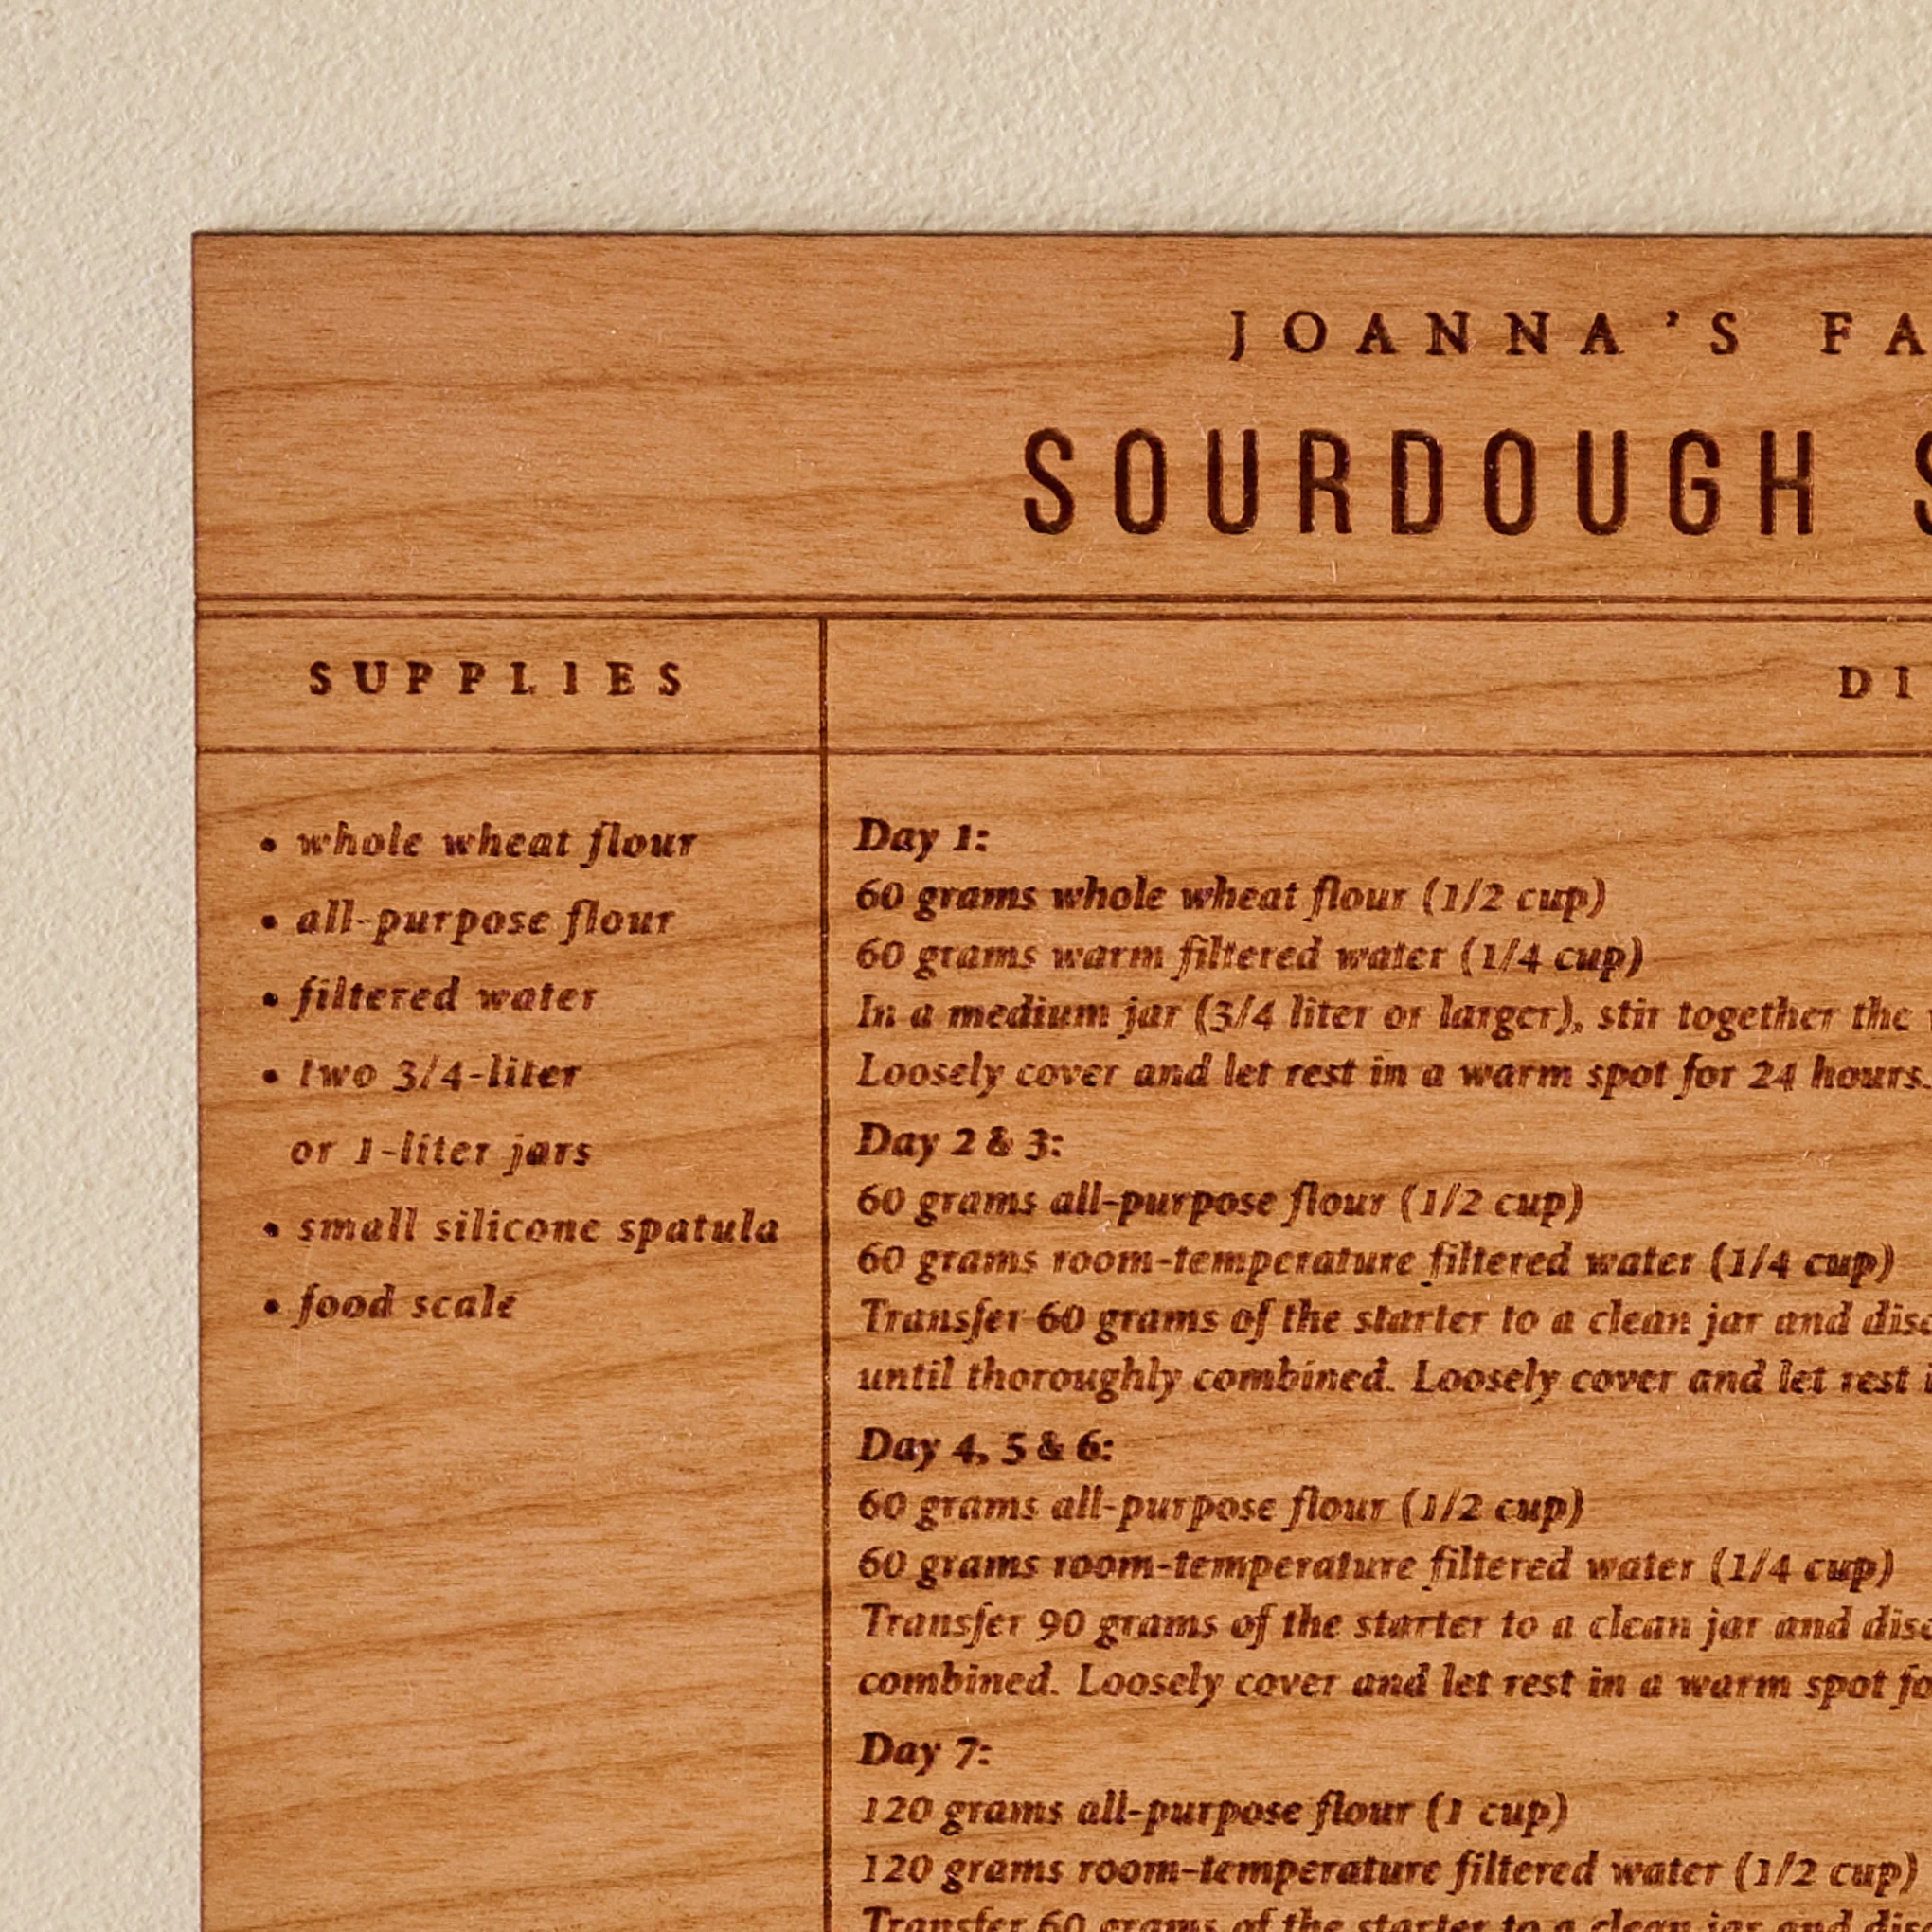 JOANNA'S FA
SOURDOUGH S
SUPPLIES
• whole wheat flour
• all-purpose flour
• filtered water
• two 3/4-liter
or 1-liter jars
• small silicone spatula
• food scale
DI
Day 1:
60 grams whole wheat flour (1/2 cup)
60 grams warm filtered water (1/4 cup)
In a medium jar (3/4 liter or larger), stir together the
Loosely cover and let rest in a warm spot for 24 hours.
Day 2 & 3:
60 grams all-purpose flour (1/2 cup)
60 grams room-temperature filtered water (1/4 cup)
Transfer 60 grams of the starter to a clean jar and disc
until thoroughly combined. Loosely cover and let rest i
Day 4, 5 & 6:
60 grams all-purpose flour (1/2 cup)
60 grams room-temperature filtered water (1/4 cup)
Transfer 90 grams of the starter to a clean jar and disc
combined. Loosely cover and let rest in a warm spot fo
Day 7:
120 grams all-purpose flour (1 cup)
120 grams room-temperature filtered water (1/2 cup)
Transfer 60 grams of the starter to a clean jar and disc